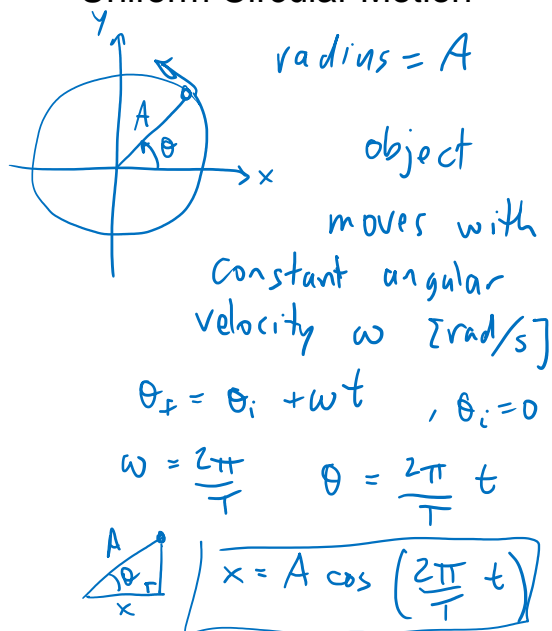 Uniform Circular Motion
y
radius = A
A
θ
x
object
moves with
constant angular
velocity ω [rad/s]
θf = θi + ωt , θi = 0
ω = 2π/T θ = 2π/T t
A
θ
x
x = A cos (2π/T t)